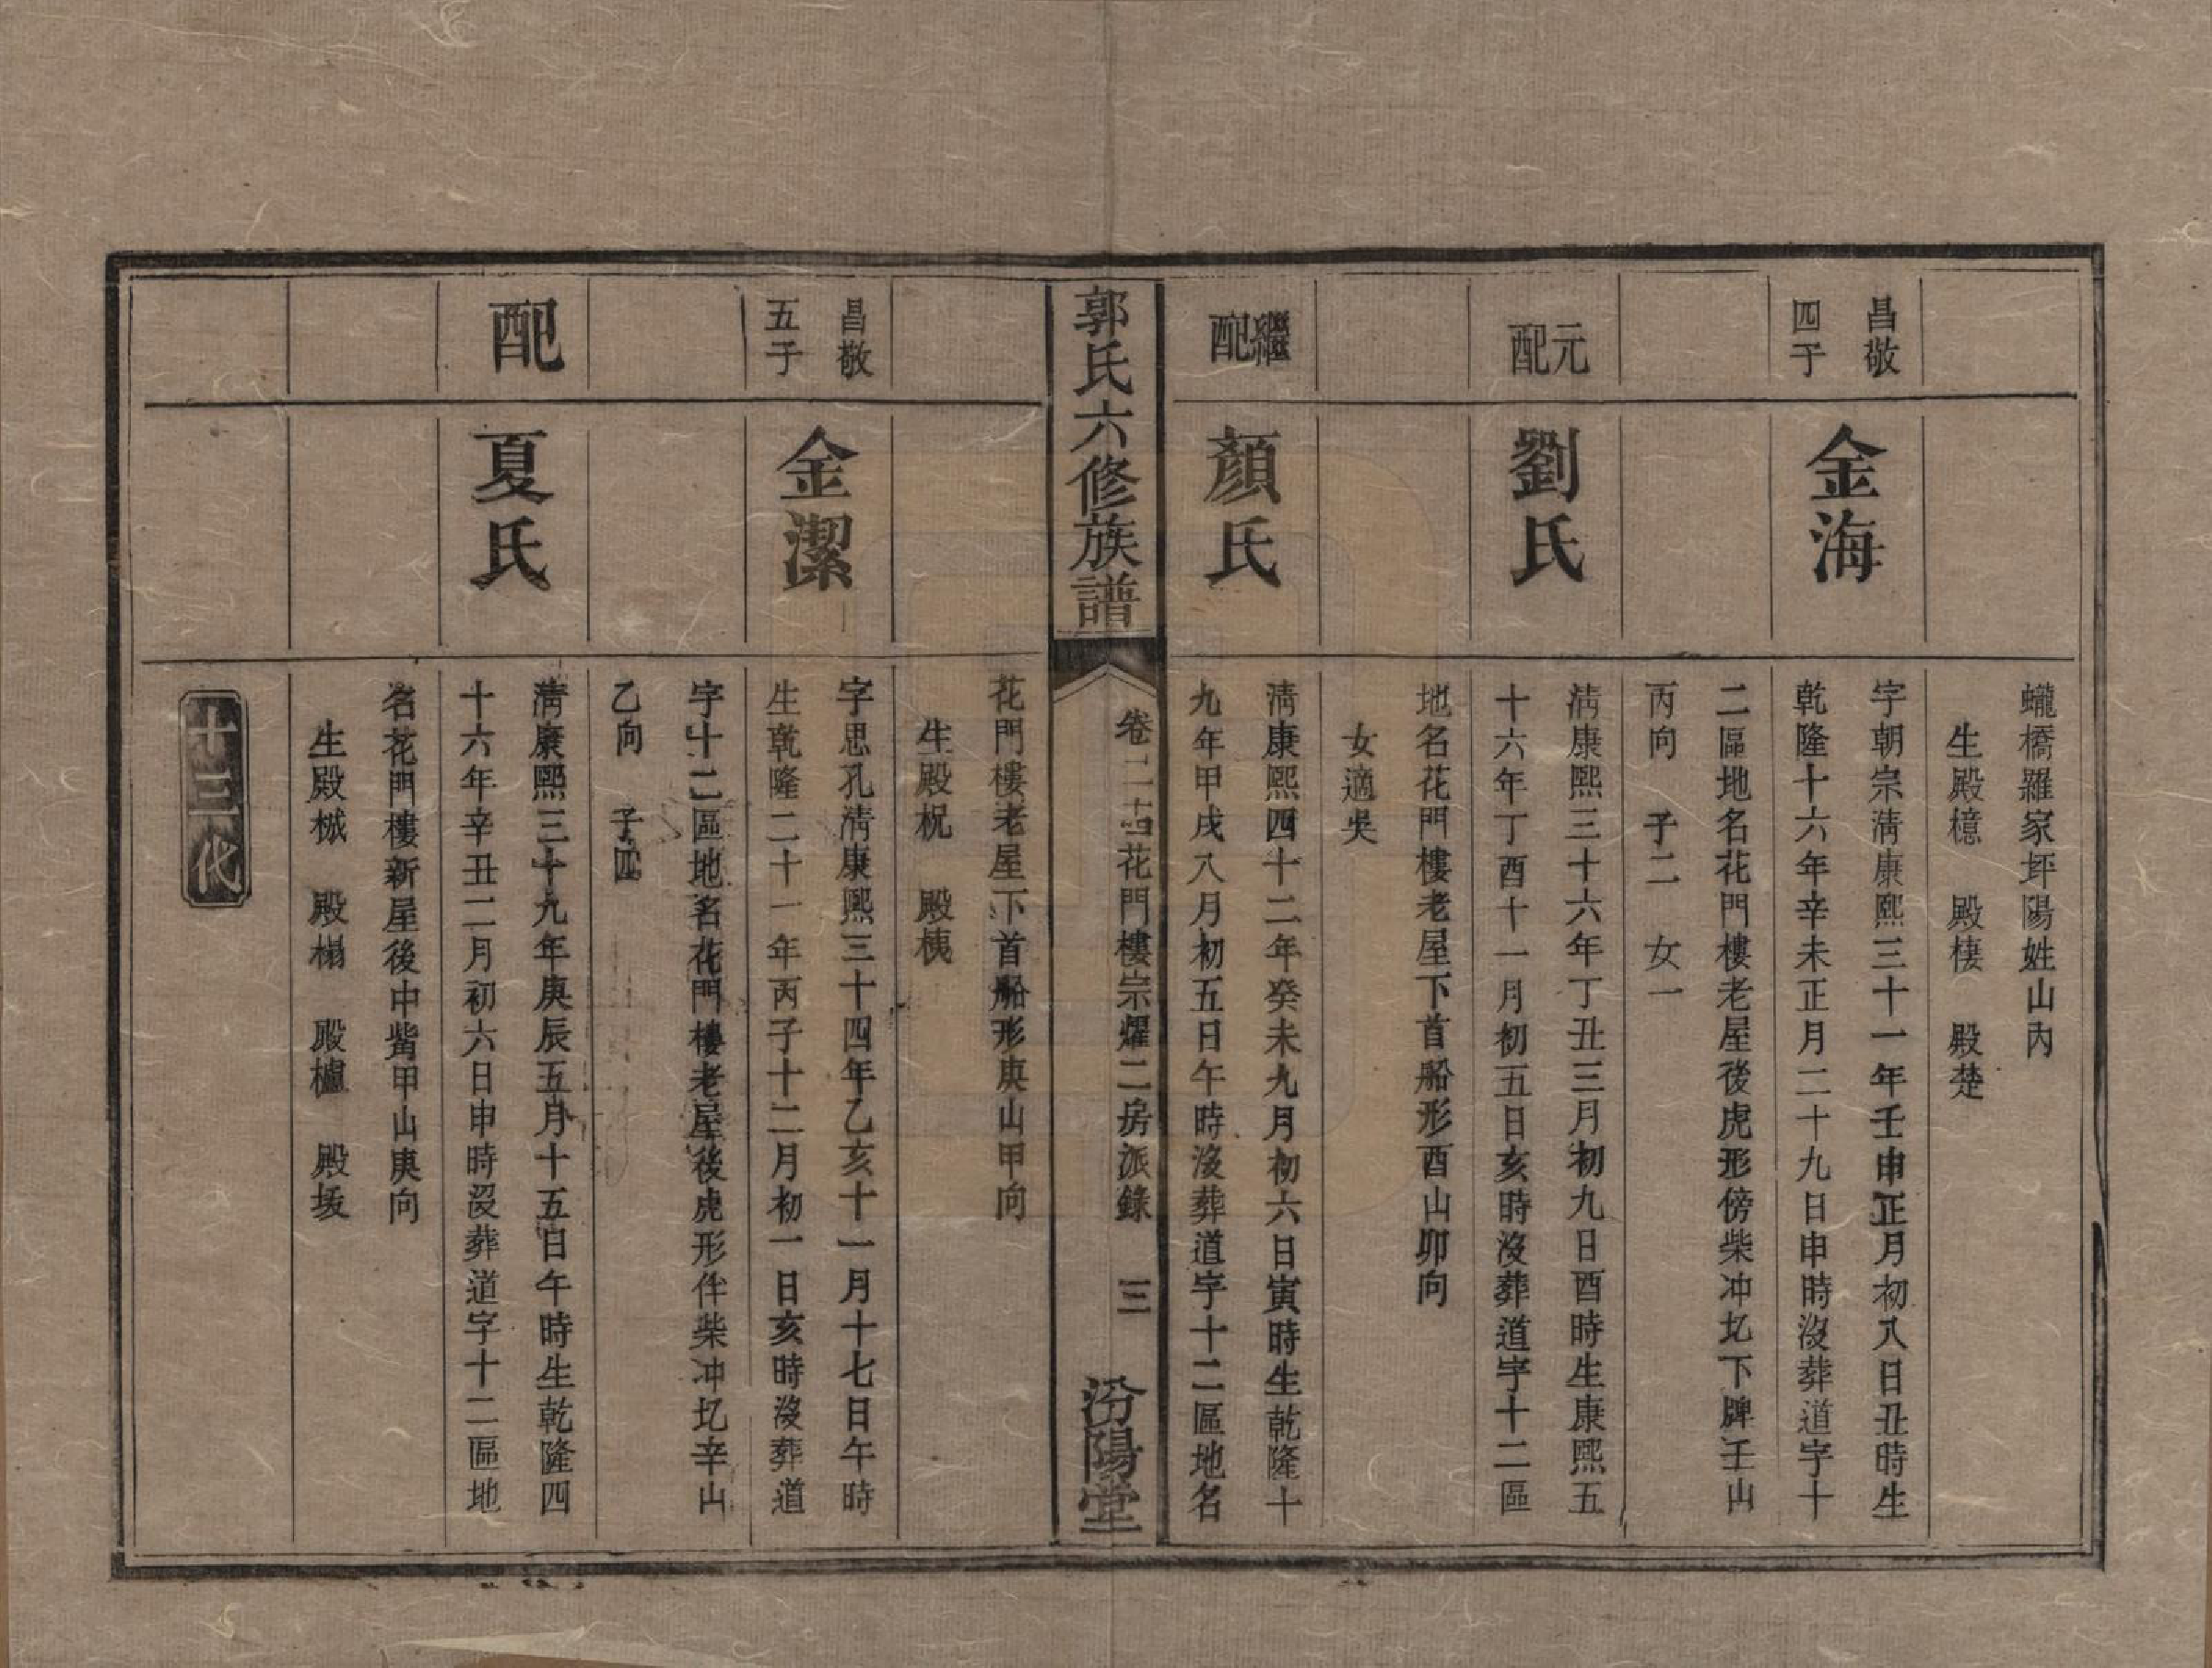 蠬橋羅家坪陽姓山內
生殿檍　殿棲　殿楚
昌敬
四子
金海
字朝宗淸康熙三十一年壬申正月初八日丑時生
乾隆十六年辛未正月二十九日申時沒葬道字十
二區地名花門樓老屋後虎形傍柴冲圠下牌壬山
丙向　子二　女一
元配
劉氏
淸康熙三十六年丁丑三月初九日酉時生康熙五
十六年丁酉十一月初五日亥時沒葬道字十二區
地名花門樓老屋下首船形酉山卯向
女適吳
繼配
顏氏
淸康熙四十二年癸未九月初六日寅時生乾隆十
九年甲戌八月初五日午時沒葬道字十二區地名
郭氏六修族譜
卷二十古花門樓宗耀二房派錄　三
汾陽堂
花門樓老屋下首船形庚山甲向
生殿柷　殿桋
昌敬
五子
金潔
字思孔淸康熙三十四年乙亥十一月十七日午時
生乾隆二十一年丙子十二月初一日亥時沒葬道
字十二區地名花門樓老屋後虎形伴柴冲圠辛山
乙向　子四
配
夏氏
淸康熙三十九年庚辰五月十五日午時生乾隆四
十六年辛丑二月初六日申時沒葬道字十二區地
名花門樓新屋後中嘴甲山庚向
生殿棫　殿榻　殿櫨　殿坂
十三代